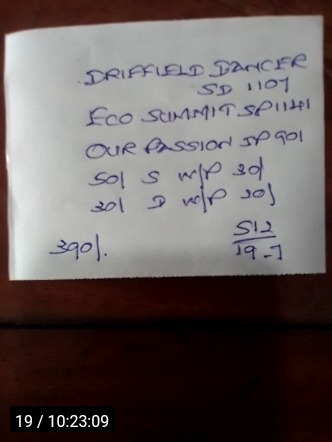 DRIFFIELD DANCER
SD 1107
ECO SUMMIT SP1141
OUR PASSION SP901
50/ S W/P 30/
30/ D W/P 20/
390/.
512
19-7
19 / 10:23:09